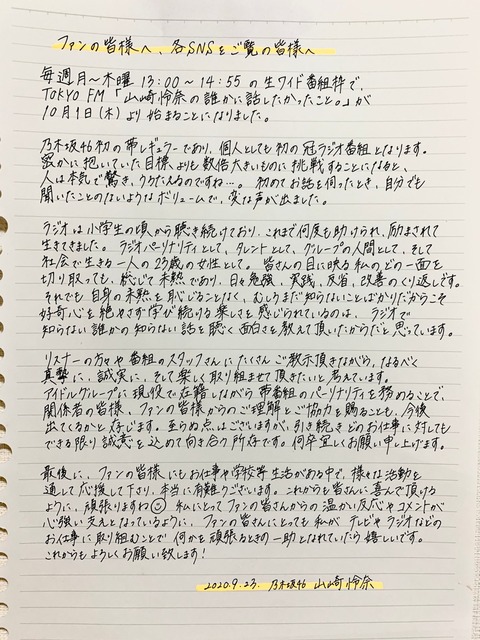 ファンの皆様へ、各SNSをご覧の皆様へ
毎週月〜木曜 13:00〜14:55 の生ワイド番組枠で、
TOKYO FM「山崎怜奈の誰かに話したかったこと。」が
10月1日(木)より始まることになりました。
乃木坂46初の帯レギュラーであり、個人としても初の冠ラジオ番組となります。
密かに抱いていた目標よりも数倍大きいものに挑戦することになると、
人は本気で驚き、うろたえるのですね…。初めてお話を伺ったとき、自分でも
聞いたことのないようなボリュームで、変な声が出ました。
ラジオは小学生の頃から聴き続けており、これまで何度も助けられ、励まされて
生きてきました。ラジオパーソナリティとして、タレントとして、グループの人間として、そして
社会で生きる一人の23歳の女性として。皆さんの目に映る私のどの一面を
切り取っても、総じて未熟であり、日々勉強、実践、反省、改善のくり返しです。
それでも自身の未熟を恥じることなく、むしろまだ知らないことばかりだからこそ
好奇心を絶やさず学び続ける楽しさを感じられているのは、ラジオで
知らない誰かの知らない話を聴く面白さを教えて頂いたからだと思っています。
リスナーの方々や番組のスタッフさんにたくさんご教示頂きながら、なるべく
真摯に、誠実に、そして楽しく取り組ませて頂きたいと考えています。
アイドルグループに現役で在籍しながら帯番組のパーソナリティを務めることで、
関係者の皆様、ファンの皆様からのご理解とご協力を賜ることも、今後
出てくるかと存じます。至らぬ点はございますが、引き続きどのお仕事に対しても
できる限り誠意を込めて向き合う所存です。何卒宜しくお願い申し上げます。
最後に、ファンの皆様にもお仕事や学校等生活がある中で、様々な活動を
通して応援して下さり、本当に有難うございます。これからも皆さんに喜んで頂ける
ように、頑張りますね☺ 私にとってファンの皆さんからの温かい反応やコメントが
心強い支えとなっているように、ファンの皆さんにとっても私がテレビやラジオなどの
お仕事に取り組むことで何かを頑張るときの一助となれていたら嬉しいです。
これからもよろしくお願い致します!
2020.9.23. 乃木坂46 山崎怜奈